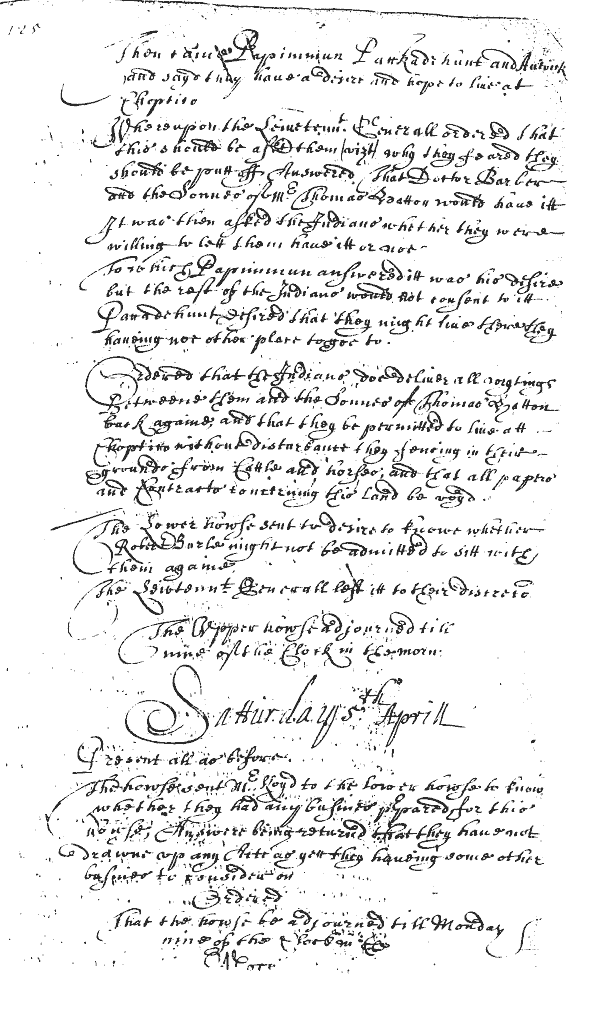 125
Then came Papimmun Pattadehunt and Auwick
and sayd they have a desire and hope to live at
Choptico
Whereupon the Leivetennt. Generall ordered that
this should be askt them (vizt) why they feared they
should be putt off, Answered, That Doctor Barber
and the Sonnes of Mr. Thomas Hatton would have itt
It was then asked the Indians whether they were
willing to lett them have itt or noe
To which Papimmun answered itt was his desire
but the rest of the Indians would not consent to itt
Paradehunt desired that they might live there they
haveing noe other place to goe to.
Ordered that the Indians doe deliver all wrytings
Betweene them and the Sonnes of Thomas Hatton
back againe, and that they be permitted to live att
Choptico without disturbance they fencing in their
grounds from Cattle and horses, and that all papers
and Contracts concerning this land be voyd.
The Lower howse sent to desire to knowe whether
Robert Burle might not be admitted to sitt with
them againe
The Leivtennt Generall left itt to their discreto
The Upper howse adjourned till
nine of the Clock in the morn
Satturday 5th Aprill
Present all as before.
The howse sent Mr. Lloyd to the lower howse to know
whether they had any busines prpared for this
howse, Answere being returned that they have not
drawne up any Acte as yett they haveing some other
busines to Consider on
Ordered
That the howse be adjourned till Monday
nine of the Clock in